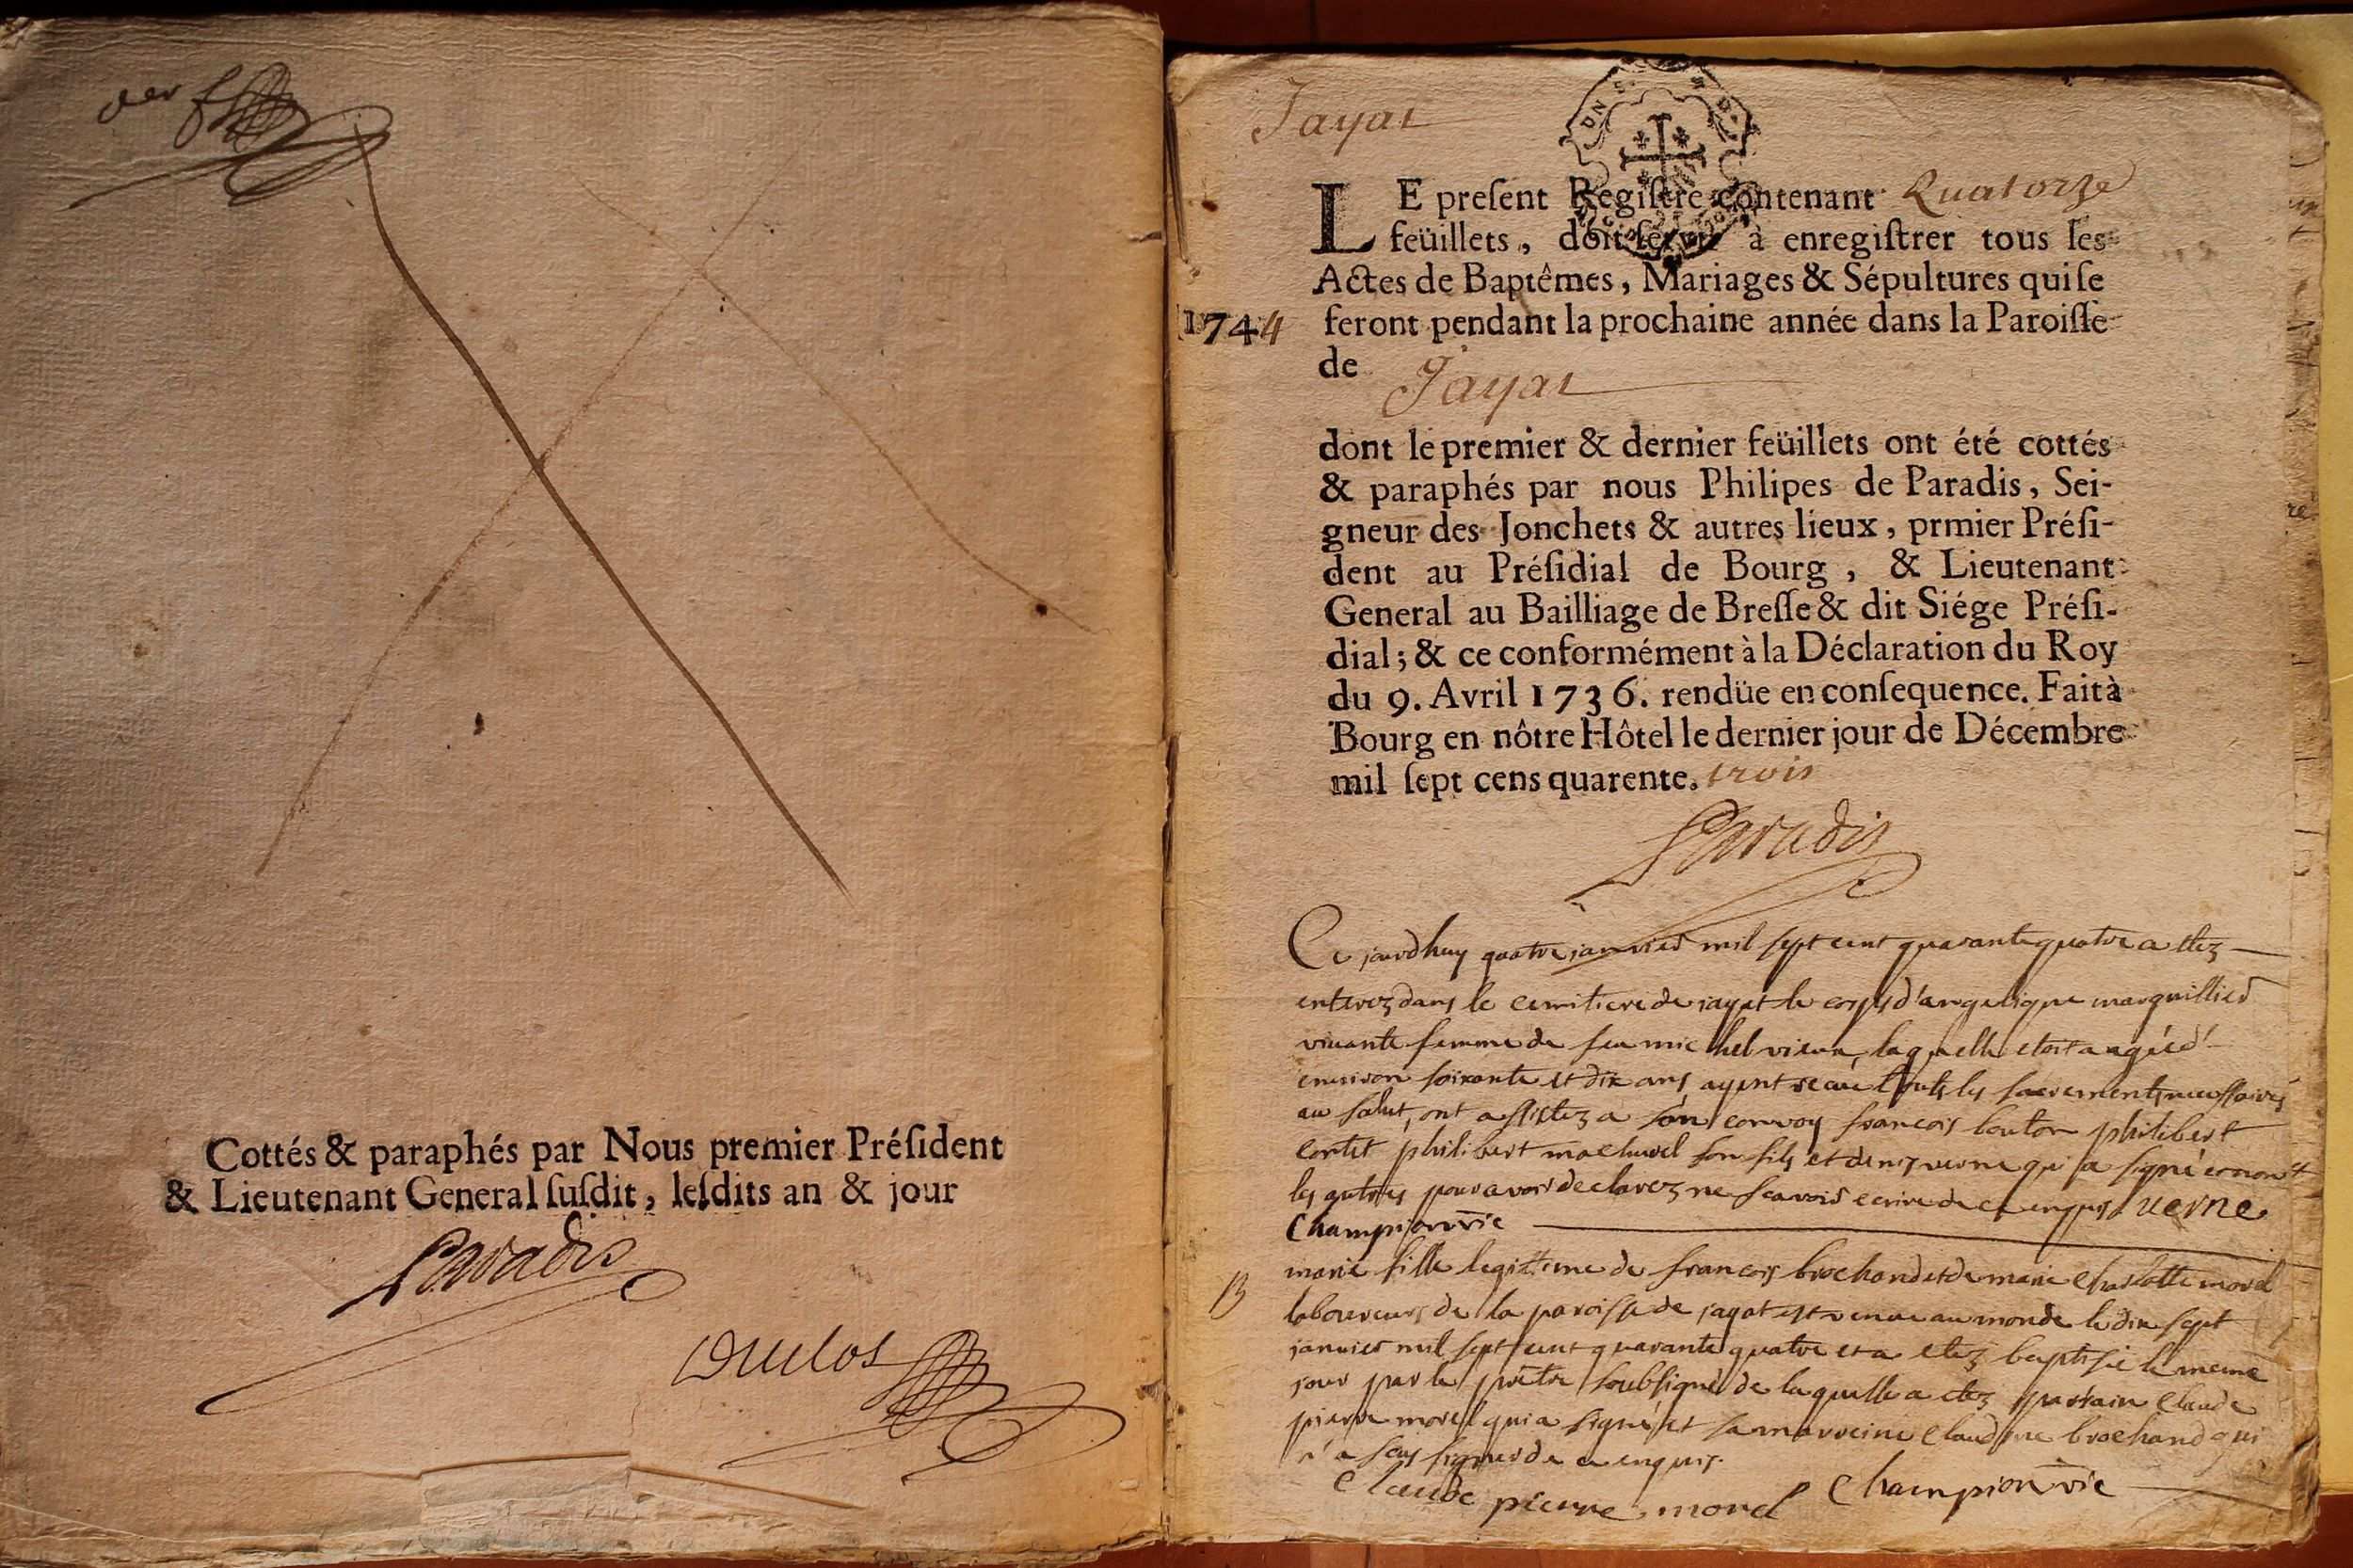 der
Cottés & paraphés par Nous premier Préſident
& Lieutenant General ſuſdit, leſdits an & jour
Paradis
Duclos
Jayat
LE preſent Regiſtre contenant Quatorze
feüillets, doit ſervir à enregiſtrer tous les
Actes de Baptêmes, Mariages & Sépultures qui ſe
1744 feront pendant la prochaine année dans la Paroiſſe
de Jayat
dont le premier & dernier feüillets ont été cottés
& paraphés par nous Philipes de Paradis, Sei-
gneur des Jonchets & autres lieux, prmier Préſi-
dent au Préſidial de Bourg, & Lieutenant
General au Bailliage de Breſſe & dit Siége Préſi-
dial; & ce conformément à la Déclaration du Roy
du 9. Avril 1736. rendüe en conſequence. Fait à
Bourg en nôtre Hôtel le dernier jour de Décembre
mil ſept cens quarente. trois
Paradis
Ce jourdhuy quatre janvier mil sept cent quarante quatre a etez
enterez dans le cemitiere de jayat le corps d'angelique marguillier
vivante femme de feu michel vieux, laquelle etoit angée d'
environ soixante et dix ans ayent recue touts les sacrements necessaires
au salut, ont assistez a son convoy francois bouton philibert
cortet philibert machurel son fils et denis verne qui a signé et non
les autres pour avoir declarez ne scavoir ecrire de ce enquis verne
Champion vic
B marie fille legitteme de francois brochand et de marie charlotte morel
laboureurs de la paroisse de jayat est venue au monde le dix sept
janvier mil sept cent quarante quatre et a etez baptisée le meme
jour par le pretre soubsigné de laquelle a etez parrain claude
pierre morel qui a signé, et sa marreine claudine brochand qui
n'a sceu signer de ce enquis.
Claude pierre morel Champion vic